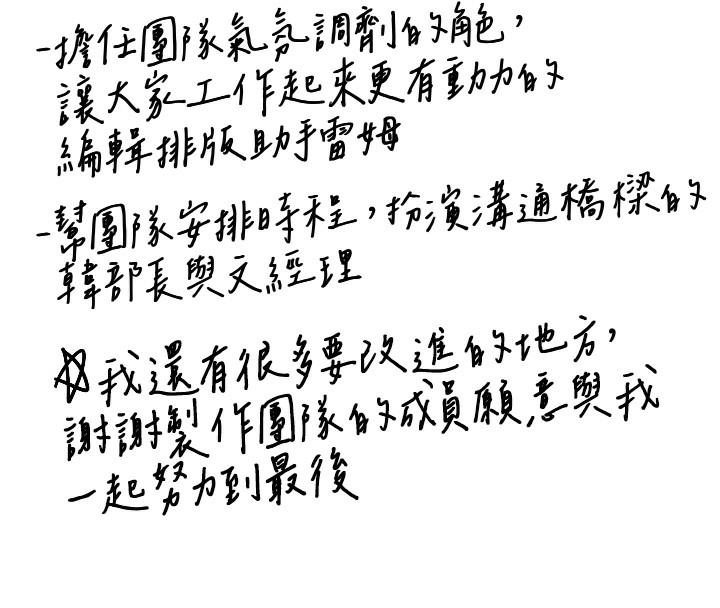 -擔任團隊氣氛調劑的角色，
讓大家工作起來更有動力的
編輯排版助手雷姆
-幫團隊安排時程，扮演溝通橋樑的
韓部長與文經理
☆我還有很多要改進的地方，
謝謝製作團隊的成員願意與我
一起努力到最後